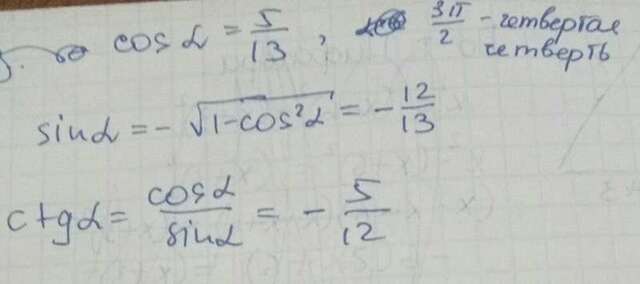 cos α = 5/13, 3π/2 - четвертая
четверть
sin α = - √(1-cos²α) = - 12/13
ctg α = cos α / sin α = - 5/12